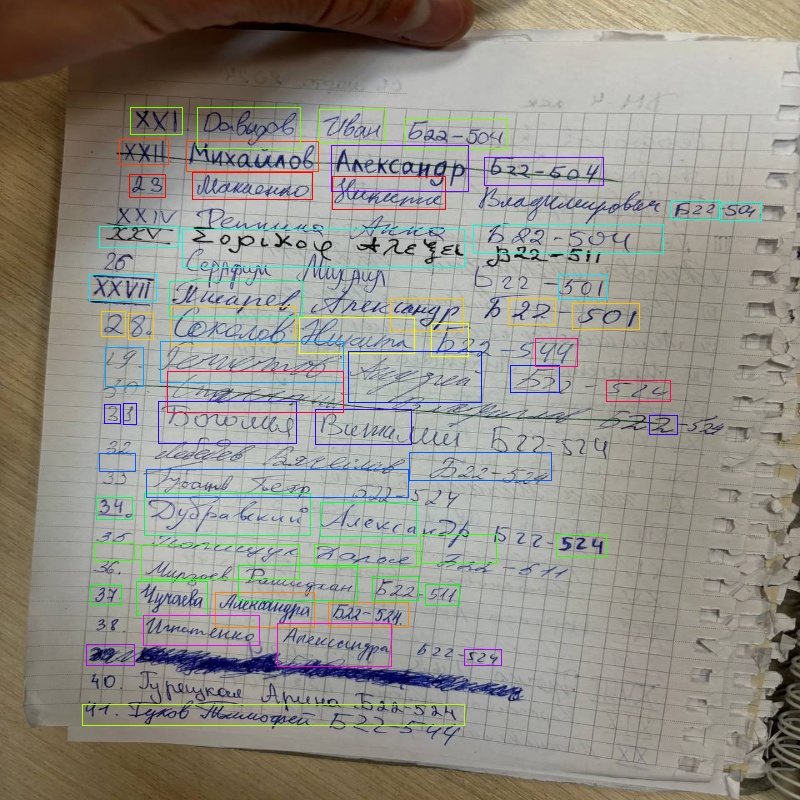 XXI Давыдов Иван Б22-504
XXII Михайлов Александр Б22-504
23 Макаенко Никита Владимирович Б22-504
XXIV Репкина Анна Б22-504
XXV Зорихов Алексей Б22-511
26 Серафим Михаил Б22-501
XXVII Писарев Александр Б22-501
28. Соколов Никита Б22-544
29. Андрей Б22-524
30. Б22-524
31 Боголия Виталий Б22-524
32 Лебедев Вячеслав Б22-524
33 Петр Б22-524
34. Дубравский Александр Б22-524
35. Полищук Дарья Б22-511
36. Мирзоев Рашидхан Б22-511
37. Чучаева Александра Б22-524.
38. Игнатенко Александра Б22-524
40. Гурецкая Арина Б22-524
41. Гуков Тимофей Б22-544